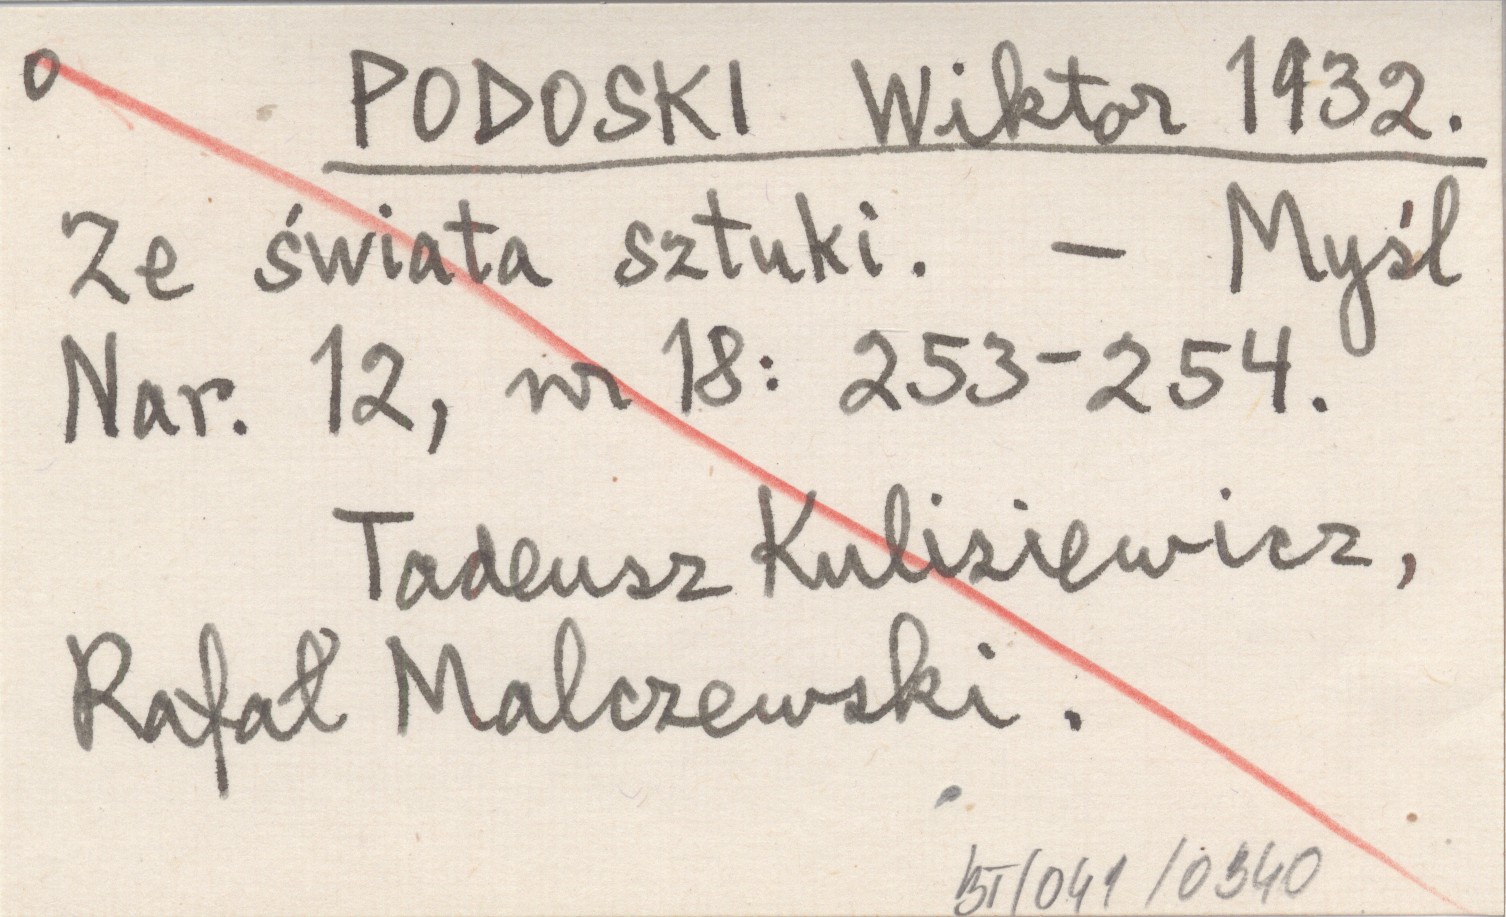 o PODOSKI Wiktor 1932.
Ze świata sztuki. – Myśl
Nar. 12, nr 18: 253-254.
Tadeusz Kulisiewicz,
Rafał Malczewski.
BI/041/0340